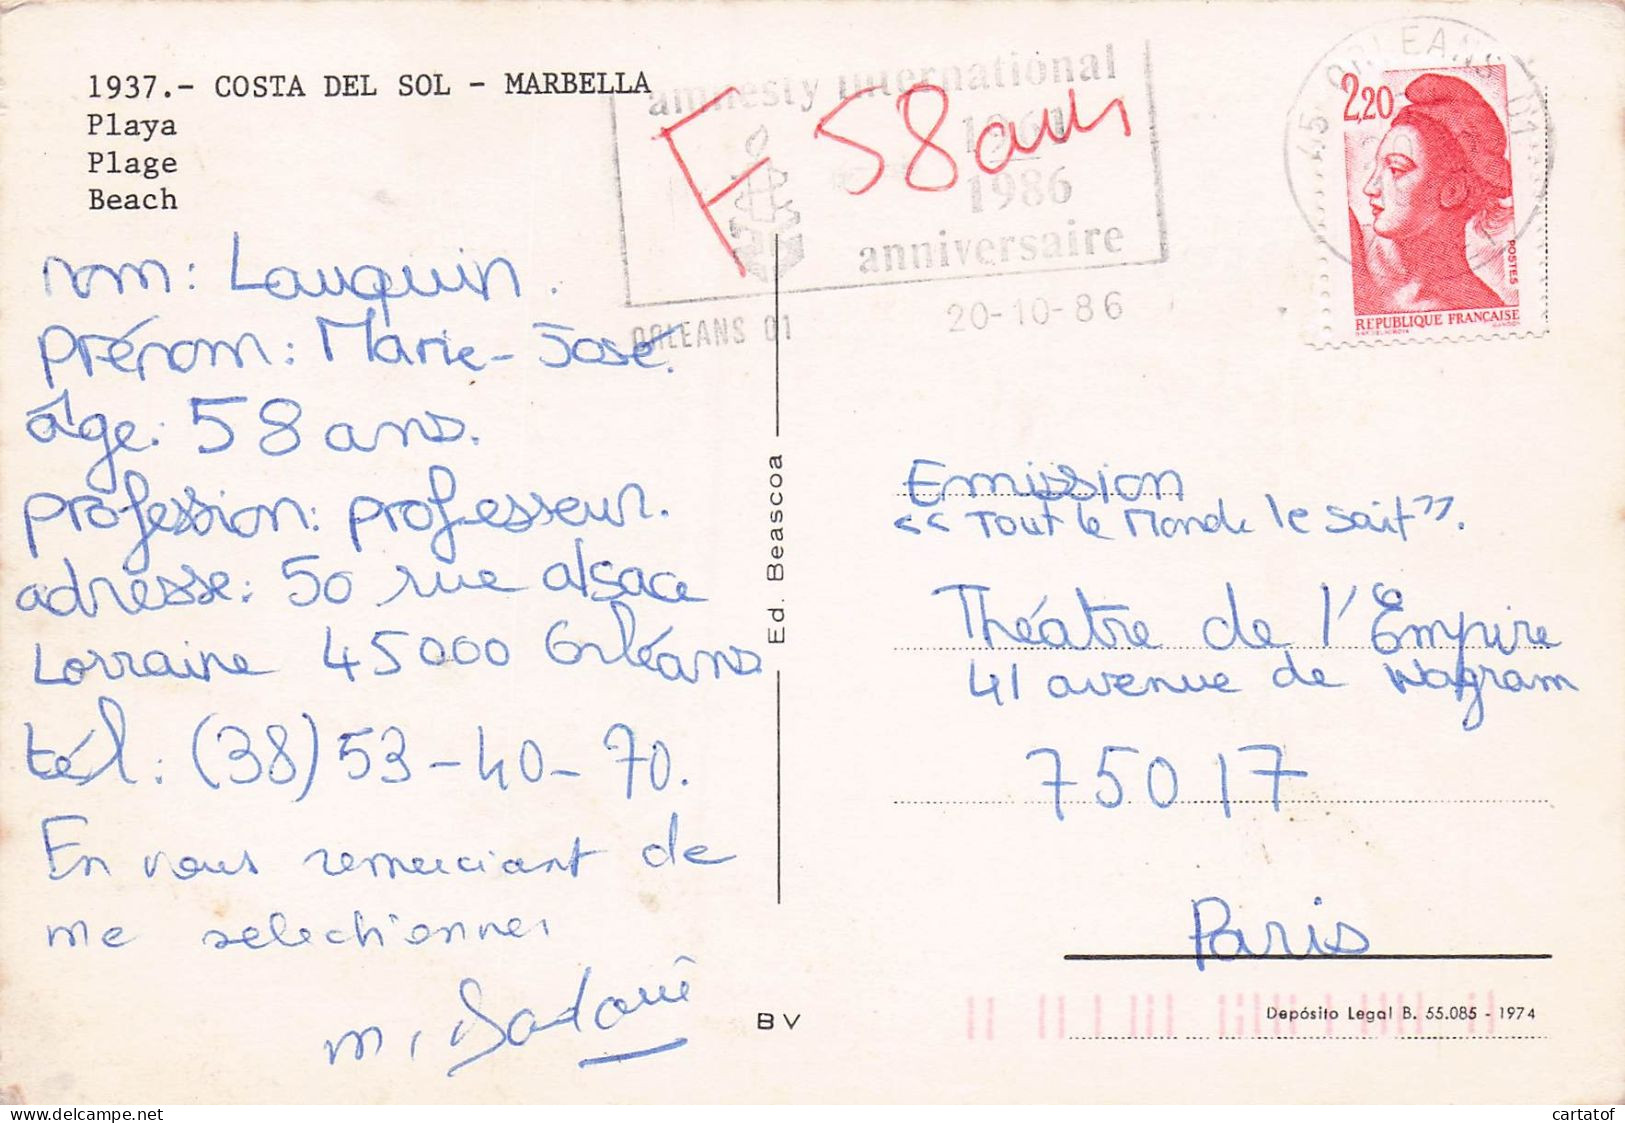 1937.- COSTA DEL SOL - MARBELLA
Playa
Plage
Beach
amnesty international
1961
1986
anniversaire
ORLEANS 01
20-10-86
F 58 ans
45 ORLEANS 01
2,20
POSTES
REPUBLIQUE FRANÇAISE
nom: Lauquin.
prénom: Marie-José.
âge: 58 ans.
profession: professeur.
adresse: 50 rue alsace
Lorraine 45000 Orléans
tél: (38) 53-40-70.
En vous remerciant de
me selectionner
Ed. Beascoa
BV
Emission
<< Tout le Monde le sait >>.
Théâtre de l'Empire
41 avenue de Wagram
75017
Paris
Depósito Legal B. 55.085 - 1974
delcampe.net
cartatof